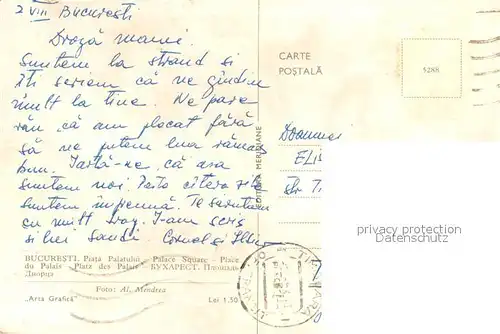 2 VIII București
Dragă mami.
Suntem la strand si
Iti scriem că ne gîndim
mult la tine. Ne pare
rău că am plecat fără
să ne putem lua rămas
bun. Iartă-ne, că asa
suntem noi. Iata cîteva zile
suntem împreună. Te sarutăm
cu mult drag. I-am scris
si lui Sandi Cornel si
CARTE
POȘTALĂ
5288
Doamnei
ELI
Str T
EDITURA MERIDIANE
privacy protection
Datenschutz
BUCUREȘTI. Piața Palatului – Palace Square – Place
du Palais – Platz des Palais – БУХАРЕСТ. Площадь
Дворца
Foto: Al. Mendrea
"Arta Grafică" Lei 1.50